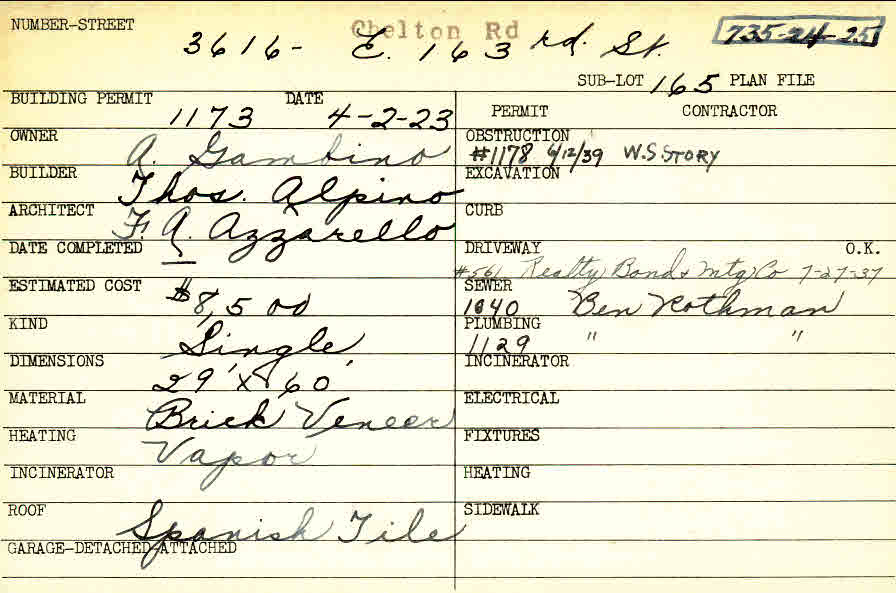 NUMBER-STREET Chelton Rd 735-24-25
3616- E. 163 rd. St.
SUB-LOT 165 PLAN FILE
BUILDING PERMIT DATE PERMIT CONTRACTOR
1173 4-2-23
OWNER A. Gambino OBSTRUCTION
#1178 6/12/39 W.S. STORY
BUILDER Thos. Alpino EXCAVATION
ARCHITECT F. A. Azzarello CURB
DATE COMPLETED DRIVEWAY O.K.
#561 Realty Bond & Mtg Co 7-27-37
ESTIMATED COST $8,500 SEWER
1840 Ben Rothman
KIND Single PLUMBING
1129 " "
DIMENSIONS 29' x 60' INCINERATOR
MATERIAL Brick Veneer ELECTRICAL
HEATING Vapor FIXTURES
INCINERATOR HEATING
ROOF Spanish Tile SIDEWALK
GARAGE-DETACHED-ATTACHED